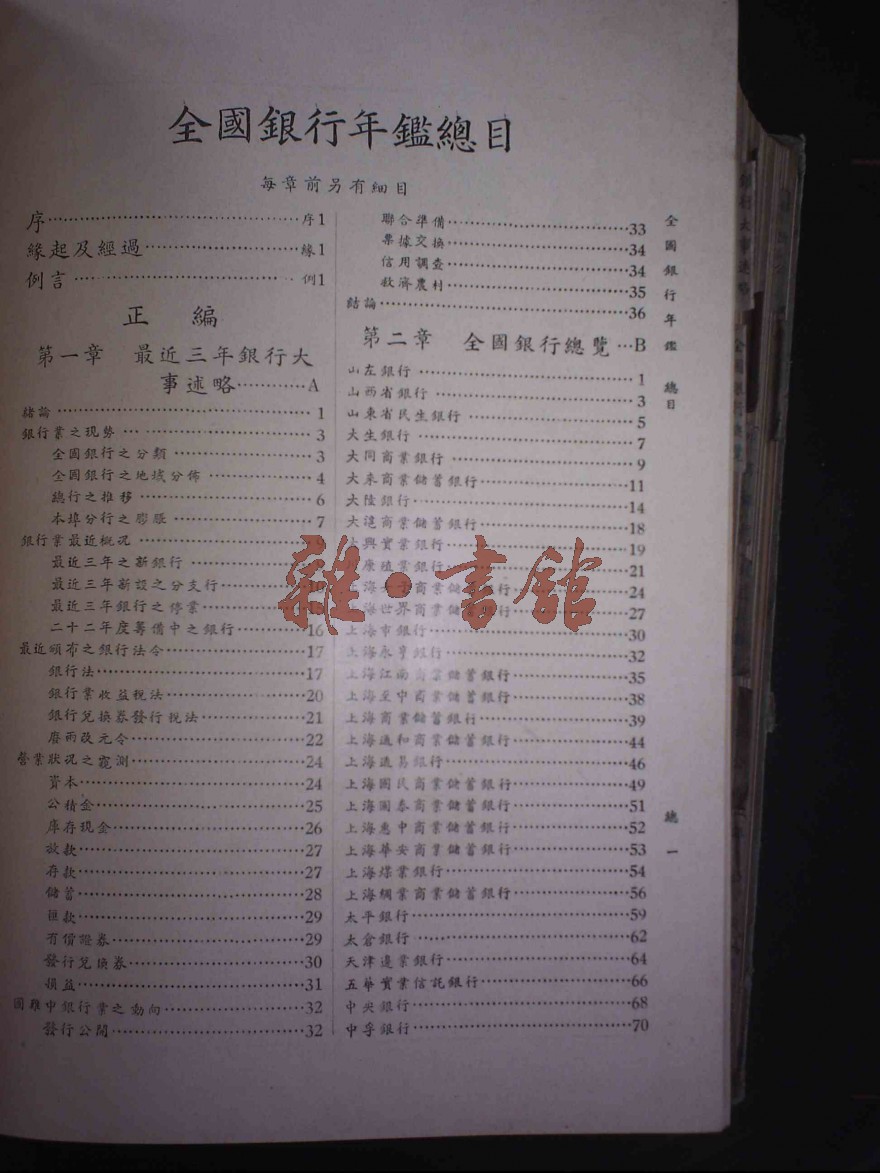 全國銀行年鑑總目
每章前另有細目
序……序1
緣起及經過……緣1
例言……例1
正 編
第一章 最近三年銀行大
事述略……A
緒論……1
銀行業之現勢……3
全國銀行之分類……3
全國銀行之地域分佈……4
總行之推移……6
本埠分行之膨脹……7
銀行業最近概况
最近三年之新銀行
最近三年新設之分支行……10
最近三年銀行之停業……15
二十二年度籌備中之銀行……16
最近頒布之銀行法令……17
銀行法……17
銀行業收益稅法……20
銀行兌換券發行稅法……21
廢兩改元令……22
營業狀况之窺測……24
資本……24
公積金……25
庫存現金……26
放款……27
存款……27
儲蓄……28
匯款……29
有價證券……29
發行兌換券……30
損益……31
國難中銀行業之動向……32
發行公開……32
聯合準備……33
票據交換……34
信用調查……34
救濟農村……35
結論……36
第二章 全國銀行總覽…B
山左銀行……1
山西省銀行……3
山東省民生銀行……5
大生銀行……7
大同商業銀行……9
大來商業儲蓄銀行……11
大陸銀行……14
大滬商業儲蓄銀行……18
大興實業銀行……19
康植業銀行……21
海女子商業儲蓄銀行……24
上海世界商業儲蓄銀行……27
上海市銀行……30
上海永亨銀行……32
上海江南商業儲蓄銀行……35
上海至中商業儲蓄銀行……38
上海商業儲蓄銀行……39
上海通和商業儲蓄銀行……44
上海通易銀行……46
上海國民商業儲蓄銀行……49
上海國泰商業儲蓄銀行……51
上海惠中商業儲蓄銀行……52
上海華安商業儲蓄銀行……53
上海煤業銀行……54
上海綢業商業儲蓄銀行……56
太平銀行……59
太倉銀行……62
天津邊業銀行……64
五華實業信託銀行……66
中央銀行……68
中孚銀行……70
全國銀行年鑑 總目
總一
雜·書館